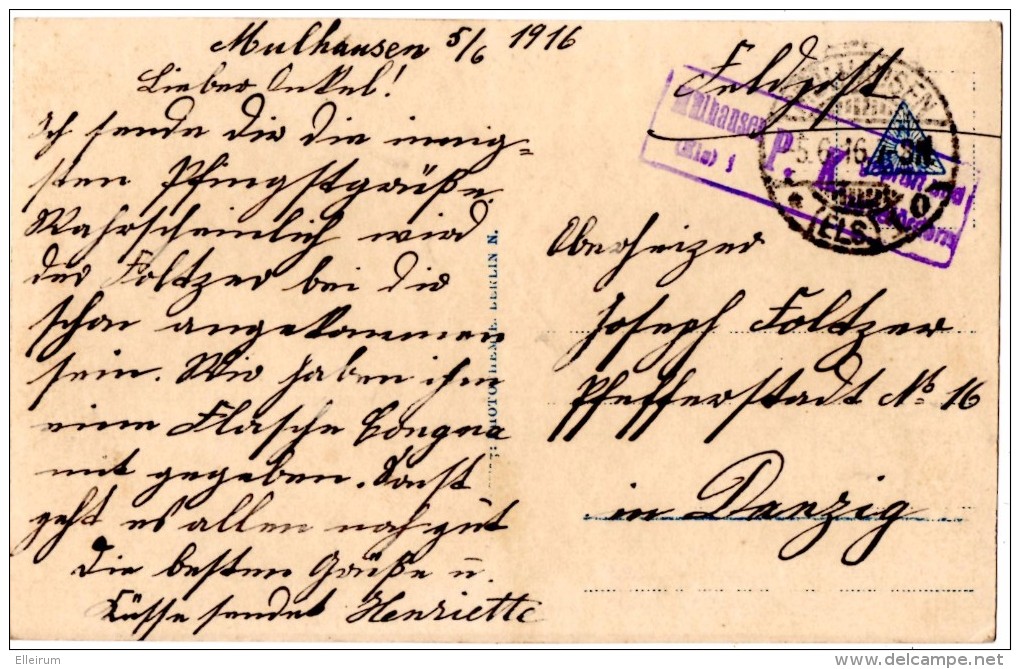 Mulhausen 5/6 1916
Lieber Onkel!
Ich sende dir die innig-
sten Pfingstgrüße.
Wahrscheinlich wird
der Foltzer bei dir
schon angekommen
sein. Wir haben ihm
eine Flasche Congna
mit gegeben. Sonst
geht es allen noch gut
Die besten Grüße u.
Küsse sendet Henriette
PHOTOCHEMIE, BERLIN N.
Feldpost
Mülhausen
(Els)
P. K.
Geprüft und
MÜLHAUSEN
5.6.16
(ELS.)
Oberheizer
Joseph Foltzer
Pfefferstadt No 16
in Danzig
Elleirum
delcampe.net